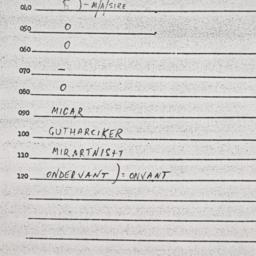 040 5 )-M/A/SIZE
050 0
060 0
070 –
080 0
090 MICAR
100 GUTHARCIKER
110 MIRARTNISHT
120 ONDERVANT ) = ONVANT